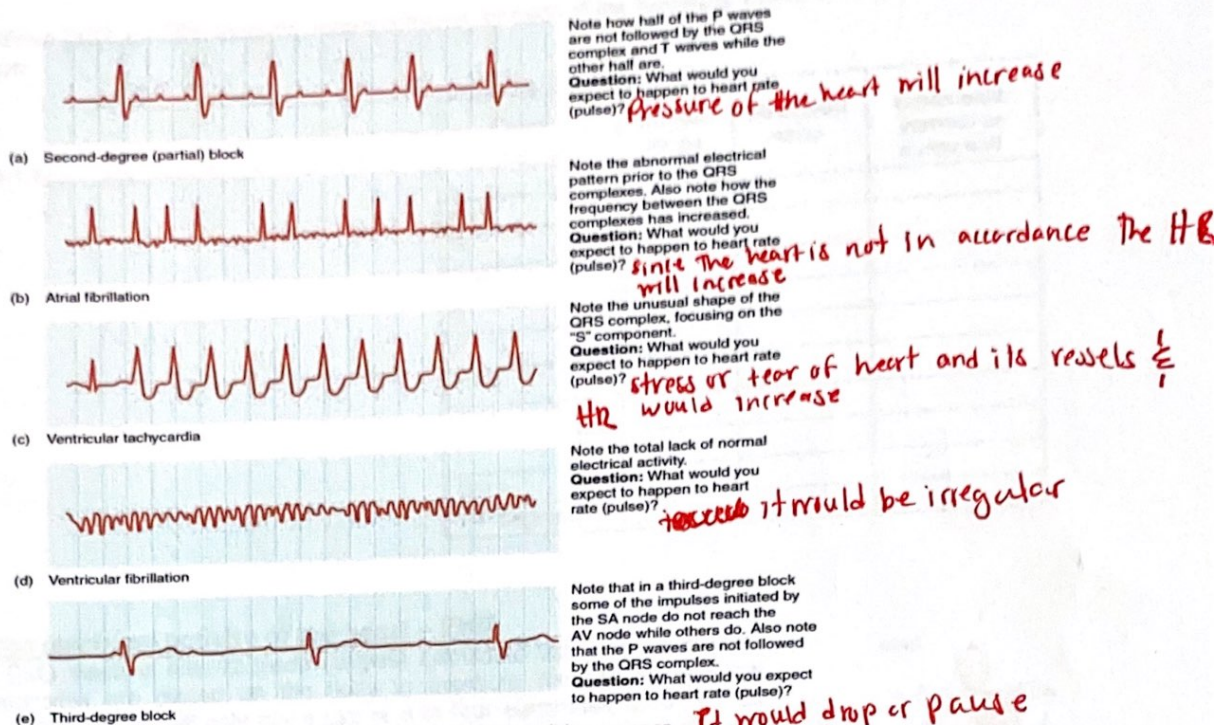 Note how half of the P waves
are not followed by the QRS
complex and T waves while the
other half are.
Question: What would you
expect to happen to heart rate
(pulse)? Pressure of the heart will increase
(a) Second-degree (partial) block
Note the abnormal electrical
pattern prior to the QRS
complexes. Also note how the
frequency between the QRS
complexes has increased.
Question: What would you
expect to happen to heart rate
(pulse)? since the heart is not in accordance the HR
will increase
(b) Atrial fibrillation
Note the unusual shape of the
QRS complex, focusing on the
"S" component.
Question: What would you
expect to happen to heart rate
(pulse)? stress or tear of heart and its vessels &
HR would increase
(c) Ventricular tachycardia
Note the total lack of normal
electrical activity.
Question: What would you
expect to happen to heart
rate (pulse)? it would be irregular
(d) Ventricular fibrillation
Note that in a third-degree block
some of the impulses initiated by
the SA node do not reach the
AV node while others do. Also note
that the P waves are not followed
by the QRS complex.
Question: What would you expect
to happen to heart rate (pulse)?
It would drop or pause
(e) Third-degree block